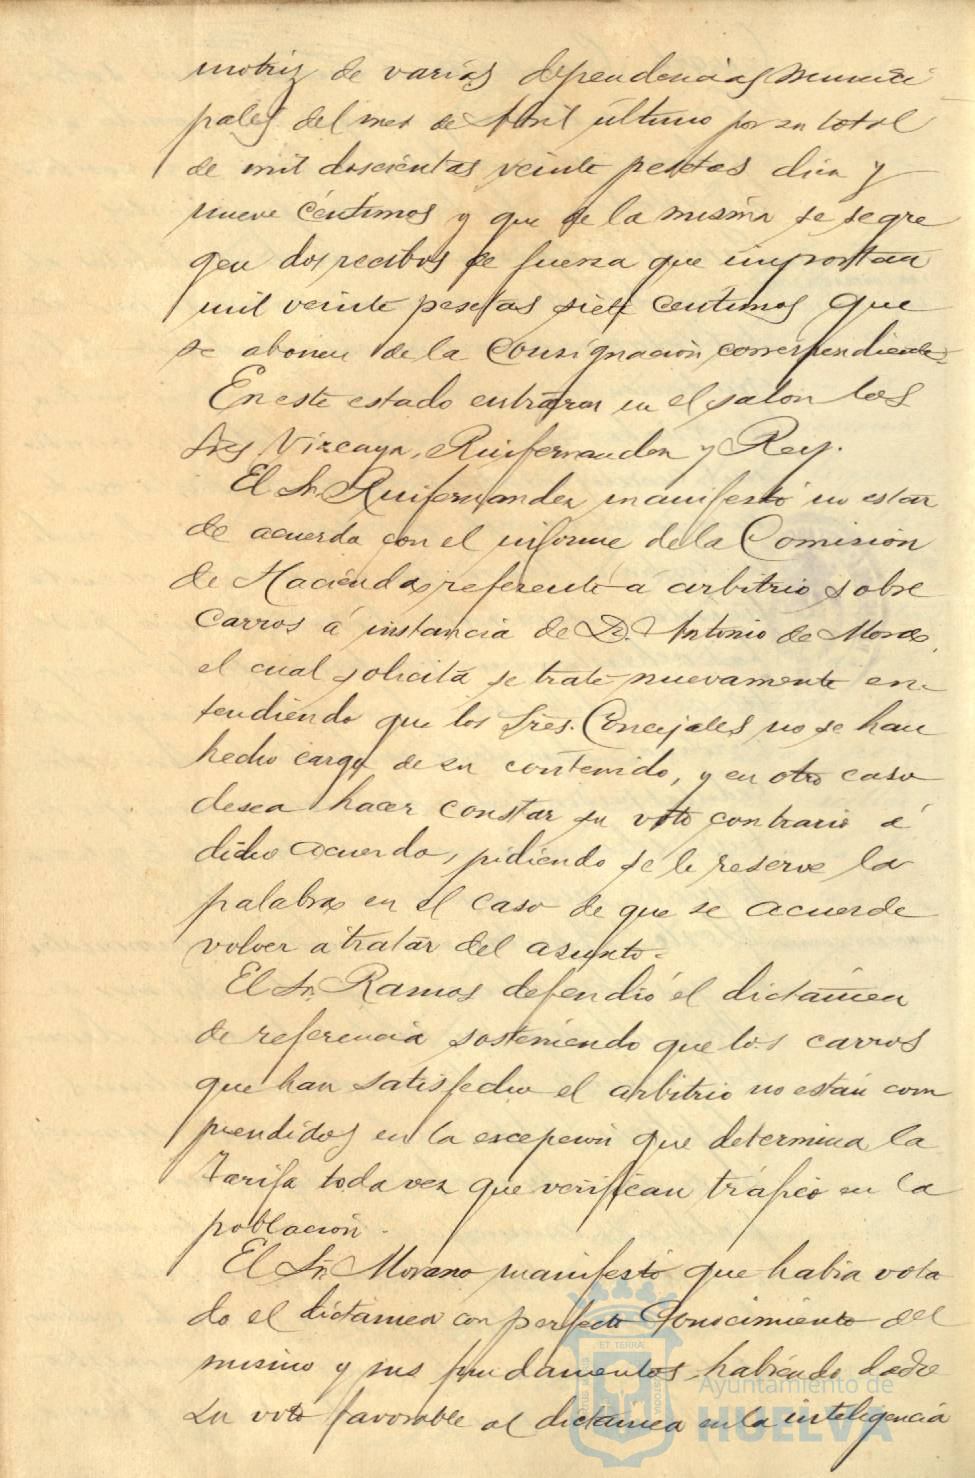 motriz de varias dependencias munici
pales del mes de Abril último por su total
de mil doscientas veinte pesetas diez y
nueve céntimos y que de la misma se segre
gen dos recibos de fuerza que importan
mil veinte pesetas siete centimos que
se abonen de la Consignación correspondiente.
En este estado entraron en el salon los
Sres Vizcaya, Ruifernandez y Rey.
El Sr. Ruifernandez manifestó no estar
de acuerdo con el informe de la Comisión
de Hacienda referente á arbitrio sobre
Carros á instancia de D. Antonio de Mora,
el cual solicita se trate nuevamente en-
tendiendo que los Sres. Concejales no se han
hecho cargo de su contenido, y en otro caso
desea hacer constar su voto contrario á
dicho acuerdo, pidiendo se le reserve la
palabra en el caso de que se acuerde
volver a tratar del asunto.
El Sr. Ramos defendió el dictámen
de referencia sosteniendo que los carros
que han satisfecho el arbitrio no están com
prendidos en la escepción que determina la
Tarifa toda vez que verifican tráfico en la
población.
El Sr. Morano manifestó que habia vota
do el dictamen con perfecto Conocimiento del
mismo y sus fundamentos, habiendo dado
su voto favorable al dictamen en la inteligencia
Ayuntamiento de
HUELVA